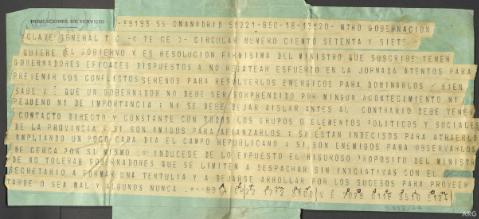 INDICACIONES DE SERVICIO
=85133 SS CMANDRID 58221 - BEC - 18 - 13'20 - MTRO GOBERNACION
CLAVE GENERAL CIRCULAR NUMERO CIENTO SETENTA Y SIETE
QUIERE EL GOBIERNO Y ES RESOLUCION FIRMISIMA DEL MINISTRO QUE SUSCRIBE
GOBERNADORES EFICACES DISPUESTOS A NO REGATEAR ESFUERZO EN LA JORNADA ATENTOS PARA
PREVENIR LOS CONFLICTOS SERENOS PARA RESOLVERLOS ENERGICOS PARA DOMINARLOS BIEN
SABE QUE UN GOBERNADOR NO DEBE SER SORPRENDIDO POR NINGUN ACONTECIMIENTO NI
PEQUEÑO NI DE IMPORTANCIA NI SE DEBE DEJAR AISLAR ANTES AL CONTRARIO DEBE TENER
CONTACTO DIRECTO Y CONSTANTE CON TODOS LOS GRUPOS O ELEMENTOS POLITICOS Y SOCIALES
DE LA PROVINCIA SI SON AMIGOS PARA AFIANZARLOS SI ESTAN INDECISOS PARA ATRAERLOS
AMPLIANDO UN POCO CADA DIA EL CAMPO REPUBLICANO SI SON ENEMIGOS PARA OBSERVARLOS
DE CERCA POR SI MISMO DEDUCESE DE LO EXPUESTO EL RIGUROSO PROPOSITO DEL MINISTRO
DE NO TOLERAR GOBERNADORES QUE SE LIMITEN A DESPACHAR SIN INICIATIVAS CON EL
SECRETARIO A FORMAR UNA TERTULIA Y A DEJARSE ARROLLAR POR LOS SUCESOS PARA
TARDE O SEA MAL Y ALGUNOS NUNCA